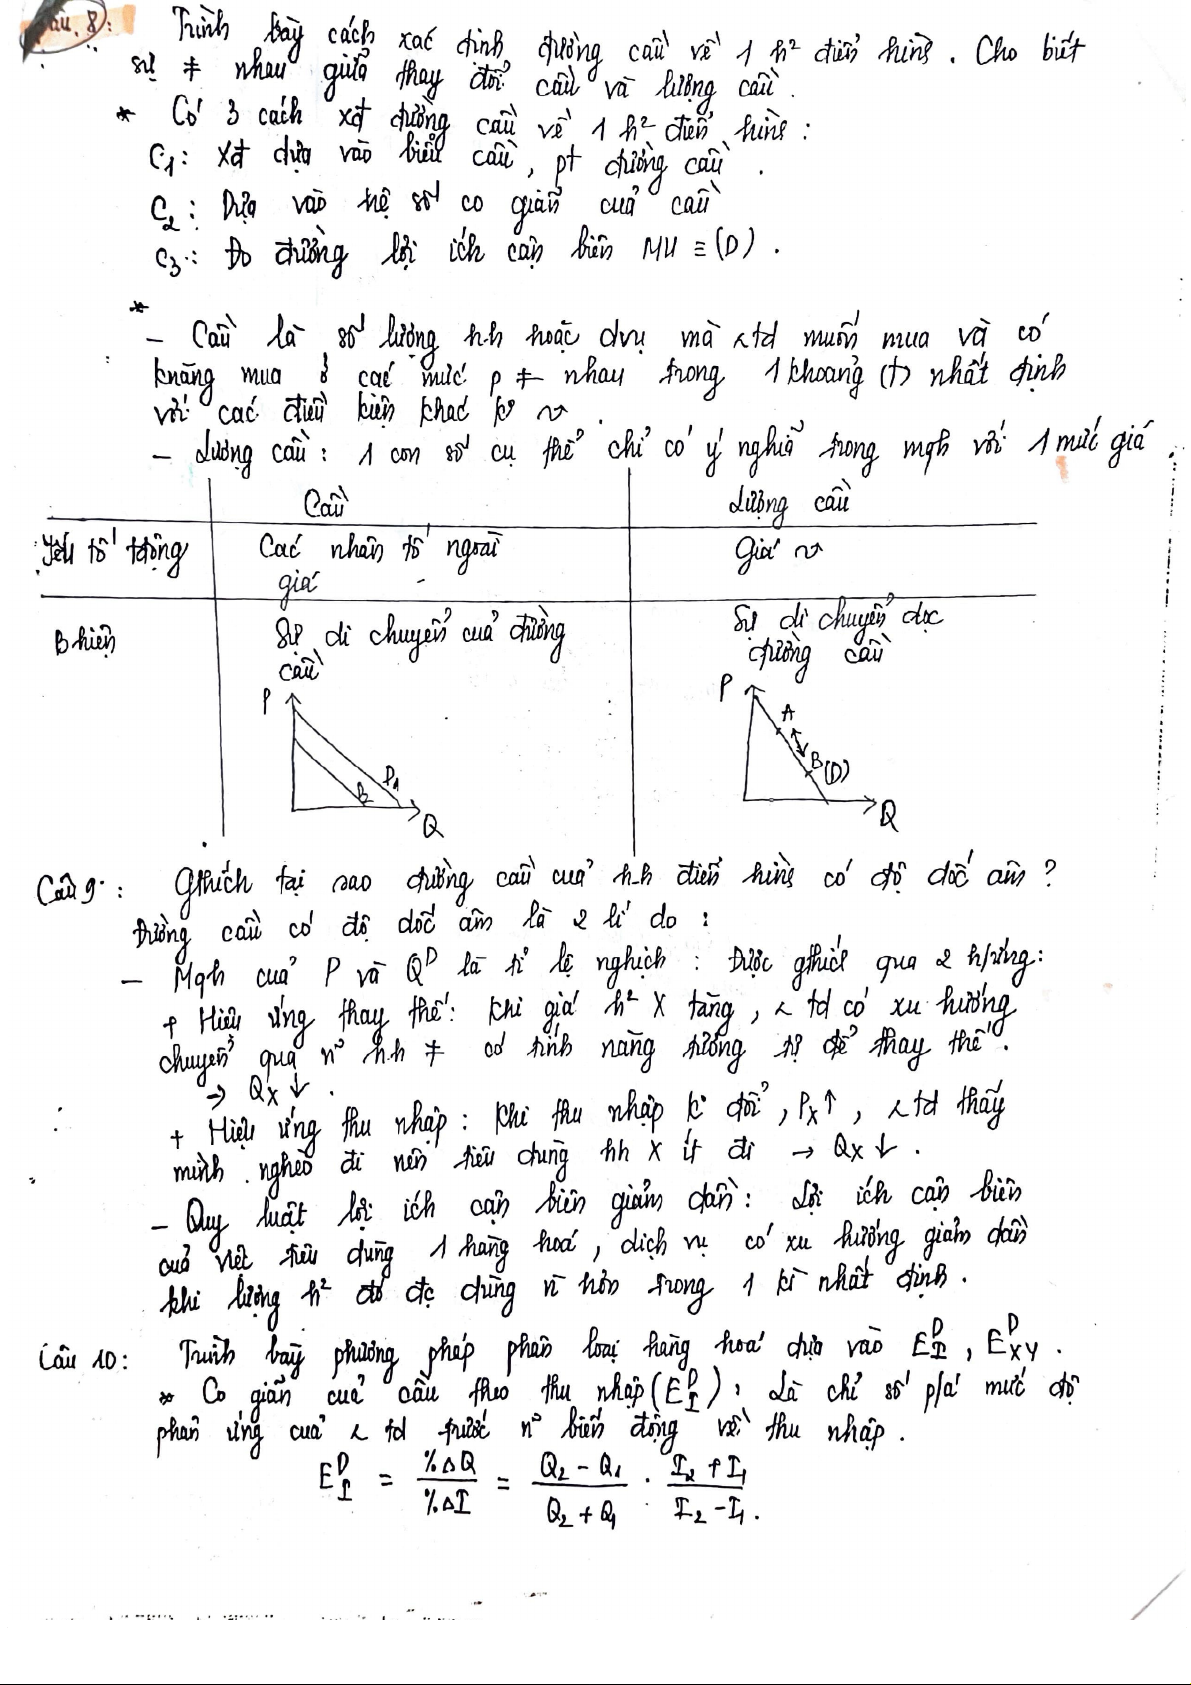 Câu 8: Trình bày cách xác định đường cầu về 1 h² điển hình. Cho biết
sự ≠ nhau giữa thay đổi cầu và lượng cầu.
* Có 3 cách xđ đường cầu về 1 h² điển hình:
C1: Xđ dựa vào biểu cầu, pt đường cầu.
C2: Dựa vào hệ số co giãn của cầu
C3: Đo đường lợi ích cận biên MU ≡ (D).
*
- Cầu là số lượng h.h hoặc dvụ mà td muốn mua và có
knăng mua ở các mức p ≠ nhau trong 1 khoảng (t) nhất định
với các điều kiện khác k°
- Lượng cầu: 1 con số cụ thể chỉ có ý nghĩa trong mqh với 1 mức giá
Cầu Lượng cầu
Yếu tố tđộng Các nhân tố ngoài Giá
giá
B hiện Sự di chuyển của đường Sự di chuyển dọc
cầu đường cầu
P P
A
B (D)
D1
Q Q
Câu 9: Gthích tại sao đường cầu của h.h điển hình có độ dốc âm?
Đường cầu có độ dốc âm là 2 lí do:
- Mqh của P và Q^D là tỉ lệ nghịch: Được gthích qua 2 h/ứng:
+ Hiệu ứng thay thế: Khi giá h² X tăng, td có xu hướng
chuyển qua n~ h.h ≠ có tính năng tương tự để thay thế.
→ Qx ↓.
+ Hiệu ứng thu nhập: Khi thu nhập k° đổi, Px↑, td thấy
mình nghèo đi nên tiêu dùng hh X ít đi → Qx ↓.
- Quy luật lợi ích cận biên giảm dần: Lợi ích cận biên
của việc tiêu dùng 1 hàng hoá, dịch vụ có xu hướng giảm dần
khi lượng h² đó đc dùng n` hơn trong 1 kì nhất định.
Câu 10: Trình bày phương pháp phân loại hàng hoá dựa vào E^D_I, E^D_XY.
* Co giãn của cầu theo thu nhập (E^D_I): Là chỉ số p/á mức độ
phản ứng của td trước n~ biến động về thu nhập.
E^D_I = %ΔQ / %ΔI = (Q2 - Q1) / (Q2 + Q1) · (I2 + I1) / (I2 - I1).